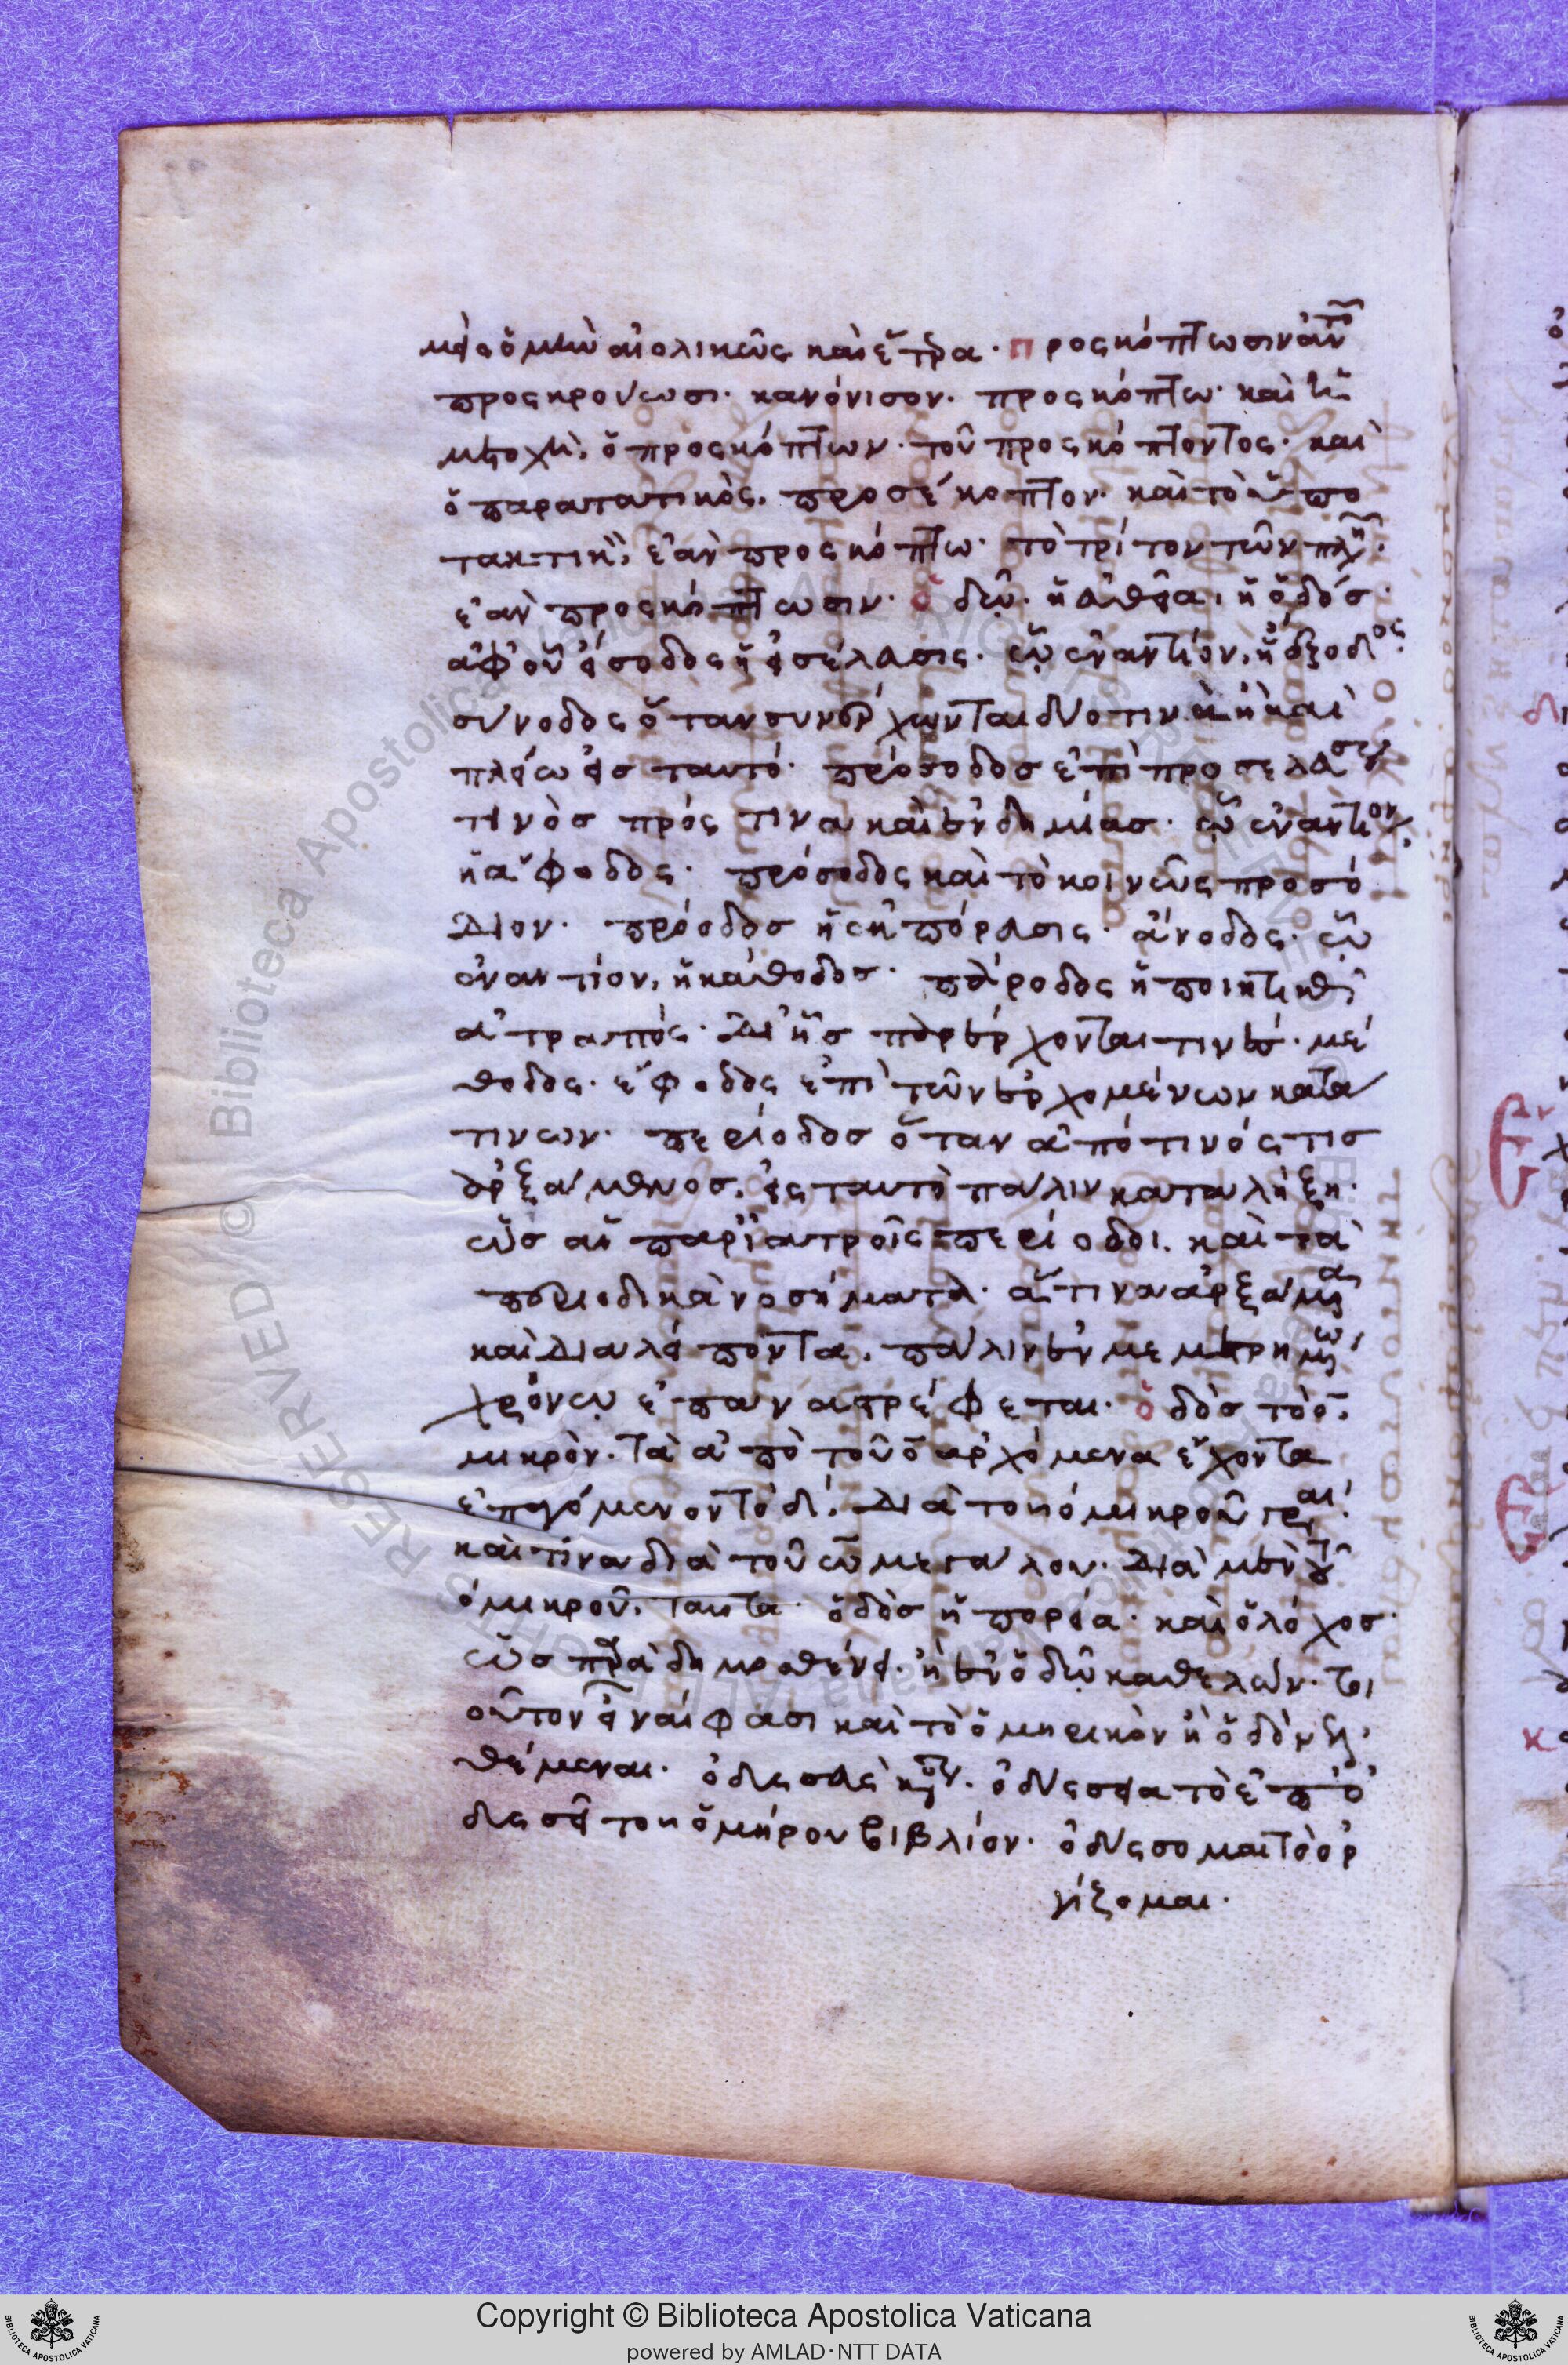 μεῖς ὄμεν αἰολικῶς καὶ ἕτερα. προσκόπτωσιν ἀντὶ τοῦ
προσκρούωσι. κανόνισον. προσκόπτω. καὶ ἡ
μετοχὴ, ὁ προσκόπτων. τοῦ προσκόπτοντος. καὶ
ὁ παρατατικὸς. προσέκοπτον. καὶ τὸ ὑπο
τακτικὴ, ἐὰν προσκόπτω. τὸ τρίτον τῶν πλη.
ἐὰν προσκόπτωσιν. ὁδῷ. ἡ εὐθεῖα, ἡ ὁδόσ.
ἀφ' οὗ εἴσοδος ἡ εἰσέλασις. ᾧ ἐναντίον, ἡ ἔξοδος.
σύνοδος ὅταν συνέρχωνται δύο τινὲς ἢ καὶ
πλείω εἰσ ταυτό. πρόσοδοσ ἐπὶ προσελάσεως
τινὸσ πρός τινα καὶ ἐνδημίασ. ᾧ ἐναντίον,
ἡ ἄφοδος. πρόσοδος καὶ τὸ κοινῶς προσό
διον. πρόοδοσ ἡ ἐκπόρευσις. ἄνοδος. ᾧ
ἐναντίον, ἡ κάθοδοσ. πάροδος ἡ ποιητικὴ
ἀτραπός. δι' ἧσ παρέρχονται τινέσ. μέ
θοδος. ἔφοδος ἐπὶ τῶν ἐρχομένων κατά
τινων. περίοδοσ ὅταν ἀπό τινός τισ
ἀρξάμενοσ, εἰς ταυτὸ πάλιν καταλήξη.
ὡσ αἱ παρ' ἰατροῖς περίοδοι. καὶ τὰ
περιοδικὰ νοσήματα. ἅτινα ἀρξάμενα
καὶ διαλείποντα, πάλιν ἐν μεμετρημένω
χρόνῳ ἐπαναστρέφεται. ὁδὸσ τὸ ο
μικρὸν. τὰ ἀπὸ τοῦ ο ἀρχόμενα ἔχοντα
ἐπαγόμενον τὸ δ, διὰ τοῦ ο μικροῦ γράφεται.
καὶ τίνα διὰ τοῦ ω μεγάλου. διὰ μὲν τοῦ
ο μικροῦ, ταῦτα. ὁδὸσ ἡ πορεία. καὶ ὁ λόχοσ.
ὡσ παρὰ δημοσθένει. ἢ ἐν ὁδῷ καθελών. τοι
οῦτον εἶναί φασι καὶ τὸ ὁμηρικὸν ἢ ὁδὸν ἐλ
θέμεναι. ὀδυσσεὺς κύριον. ὀδύσσεια τὸ ἐπ' ὀ
δυσσεῖ τοῦ ὁμήρου βιβλίον. ὀδύσσομαι τὸ ὀρ
γίζομαι.
Copyright © Biblioteca Apostolica Vaticana
powered by AMLAD·NTT DATA